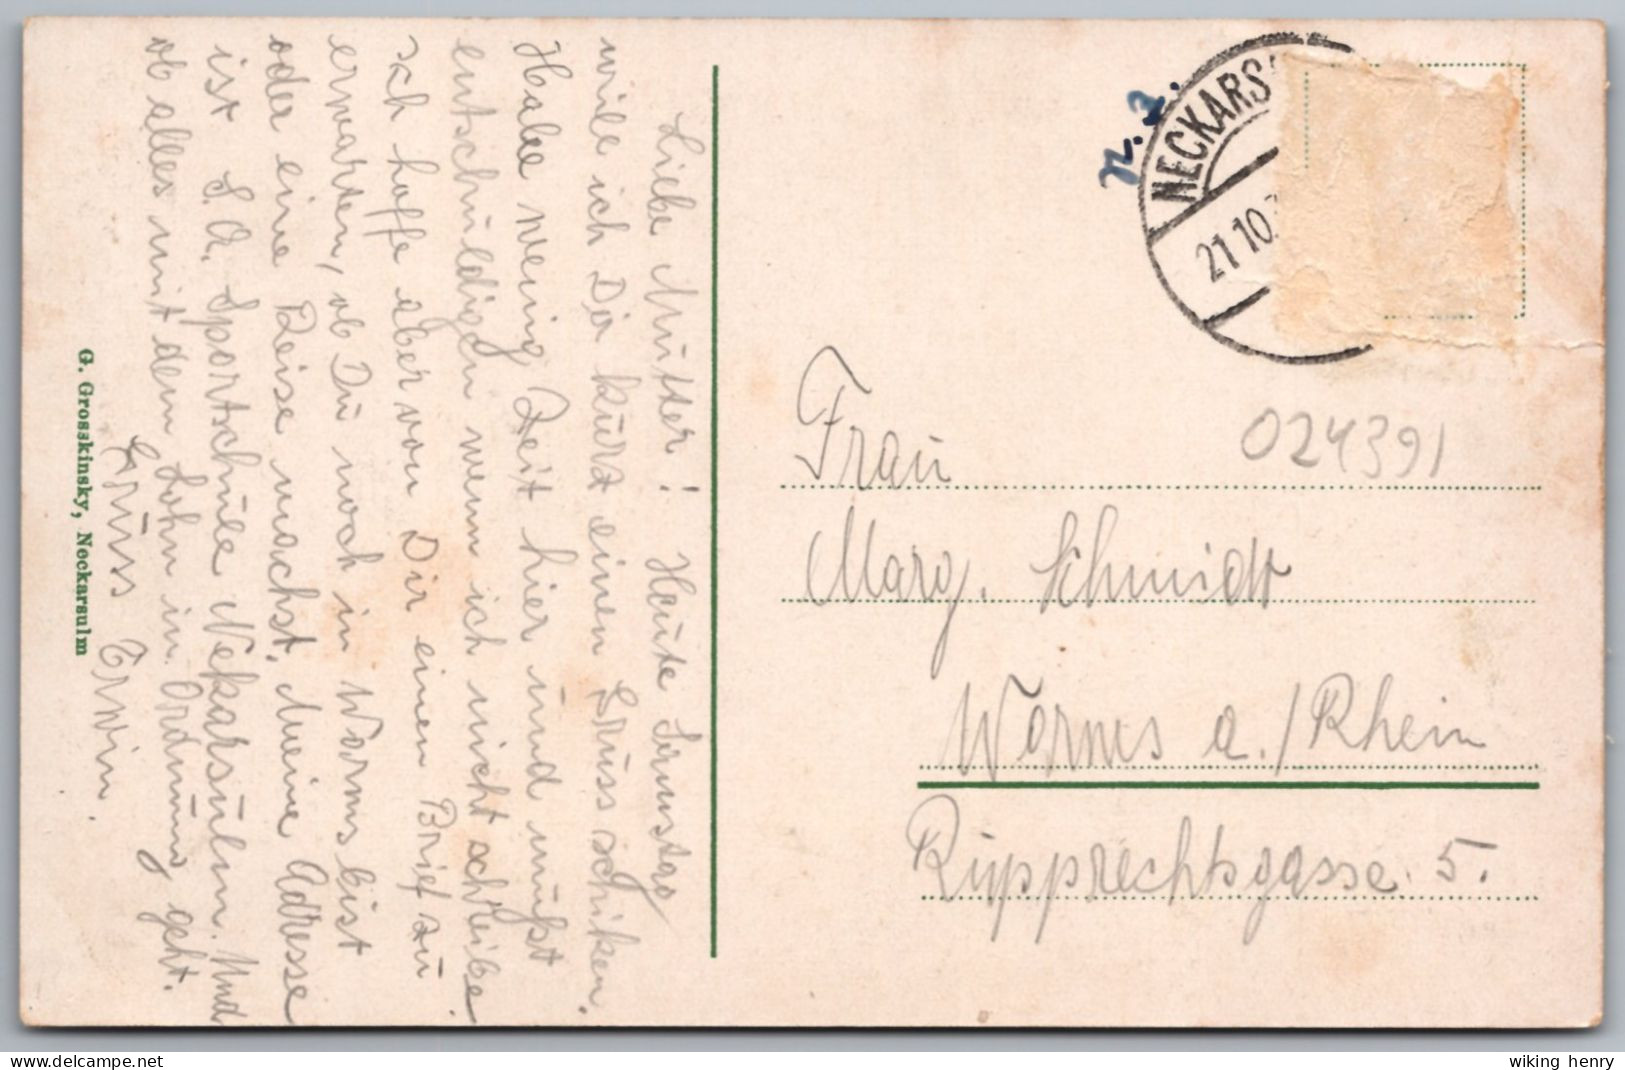 Liebe Mutter! Heute Sonntag
will ich Dir kurz einen Gruss schiken.
Habe wenig Zeit hier und mußt
entschuldigen wenn ich nicht schreibe
ich hoffe aber von Dir einen Brief zu
erwarten, ob Du noch in Worms bist
oder eine Reise machst. Meine Adresse
ist S.A. Sportschule Nekarsulm. Und
ob alles mit dem Lohn in Ordnung geht.
Gruss Erwin.
G. Grosskinsky, Neckarsulm
n. z.
NECKARS
21.10.
024391
Frau
Marg. Schmidt
Worms a./Rhein
Rupprechtsgasse 5.
delcampe.net
wiking_henry